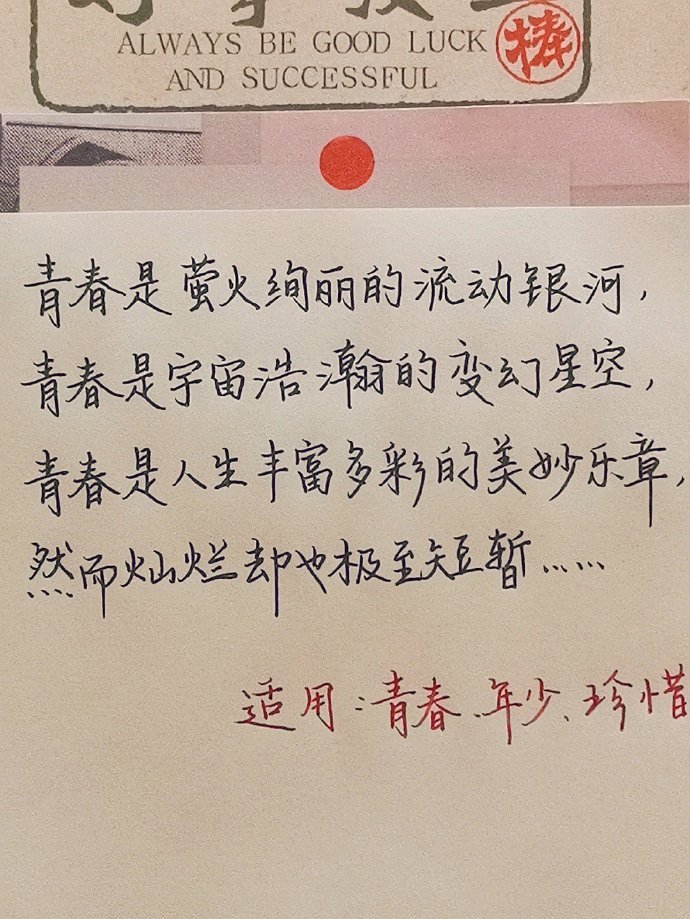 ALWAYS BE GOOD LUCK
棒
AND SUCCESSFUL
青春是萤火绚丽的流动银河，
青春是宇宙浩瀚的变幻星空，
青春是人生丰富多彩的美妙乐章，
然而灿烂却也极至短暂……
适用：青春、年少、珍惜